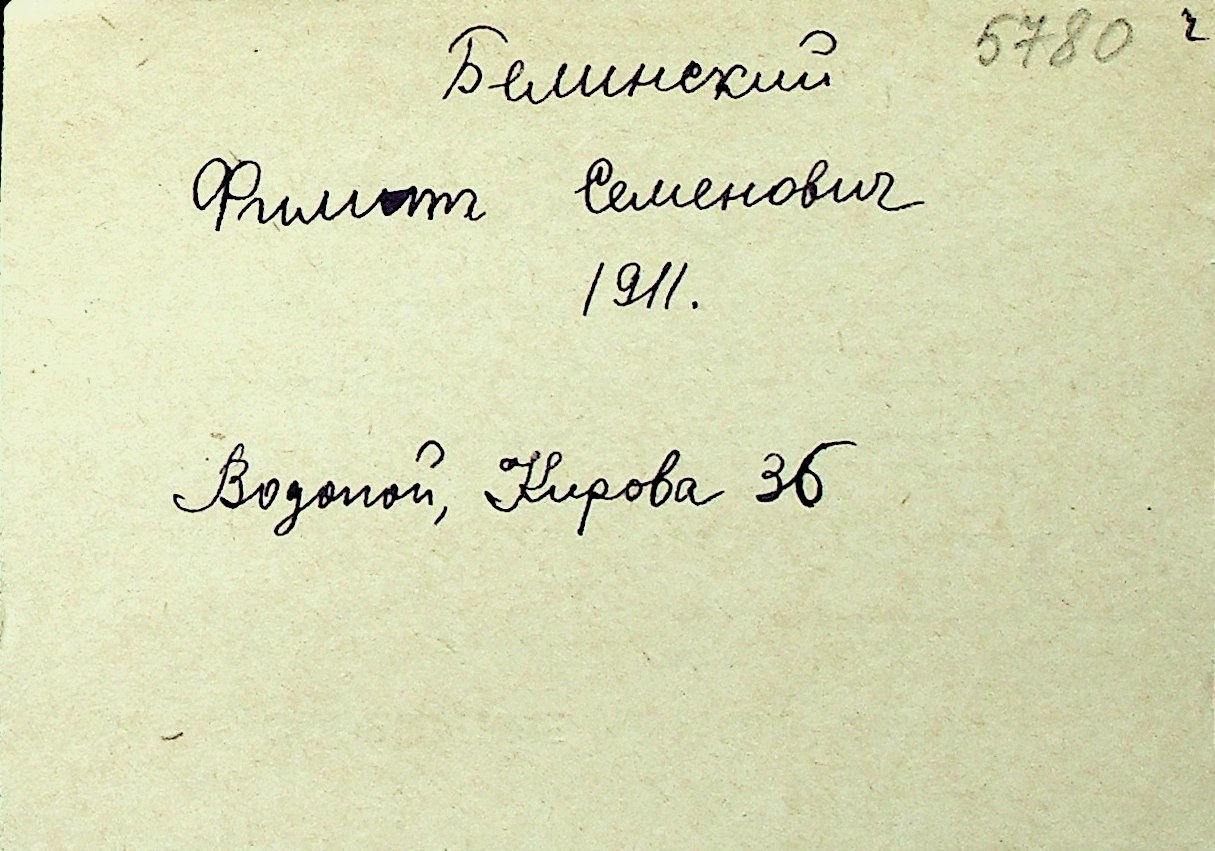 5780 ч
Белинский
Семенович
1911.
Водопой, Кирова 36